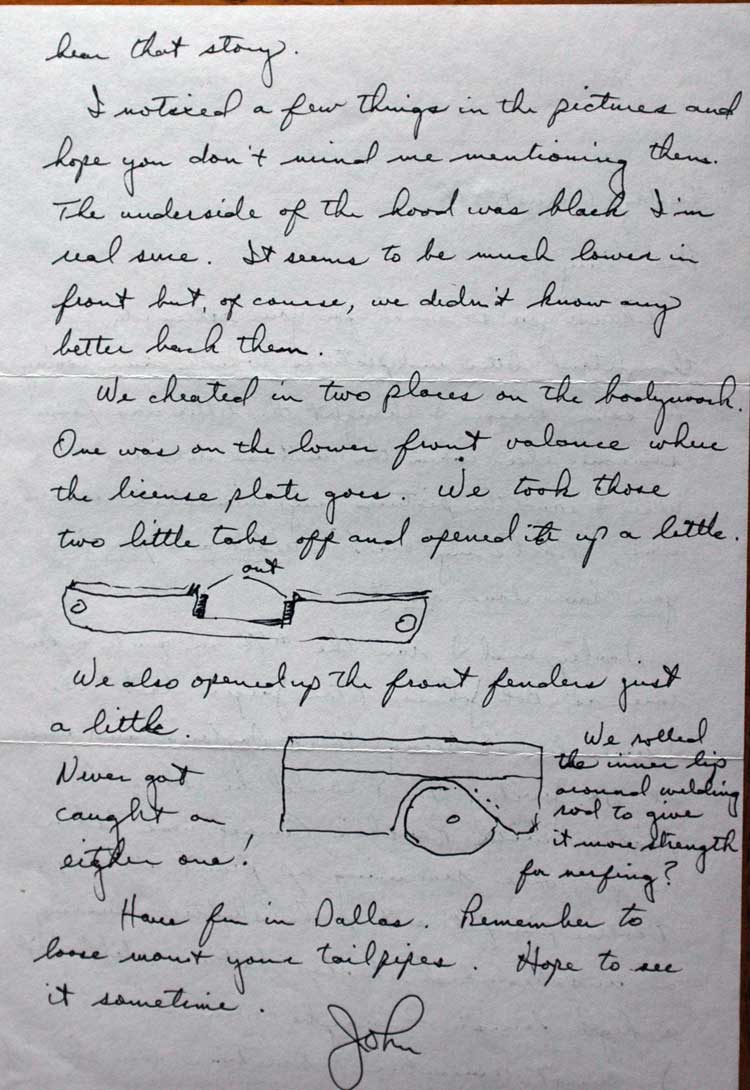 hear that story.
I noticed a few things in the pictures and
hope you don't mind me mentioning them.
The underside of the hood was black I'm
real sure. It seems to be much lower in
front but, of course, we didn't know any
better back then.
We cheated in two places on the bodywork.
One was on the lower front valance where
the license plate goes. We took those
two little tabs off and opened it up a little.
out
We also opened up the front fenders just
a little.
Never got
caught on
either one!
We rolled
the inner lip
around welding
rod to give
it more strength
for nerfing?
Have fun in Dallas. Remember to
loose mount your tailpipes. Hope to see
it sometime.
John